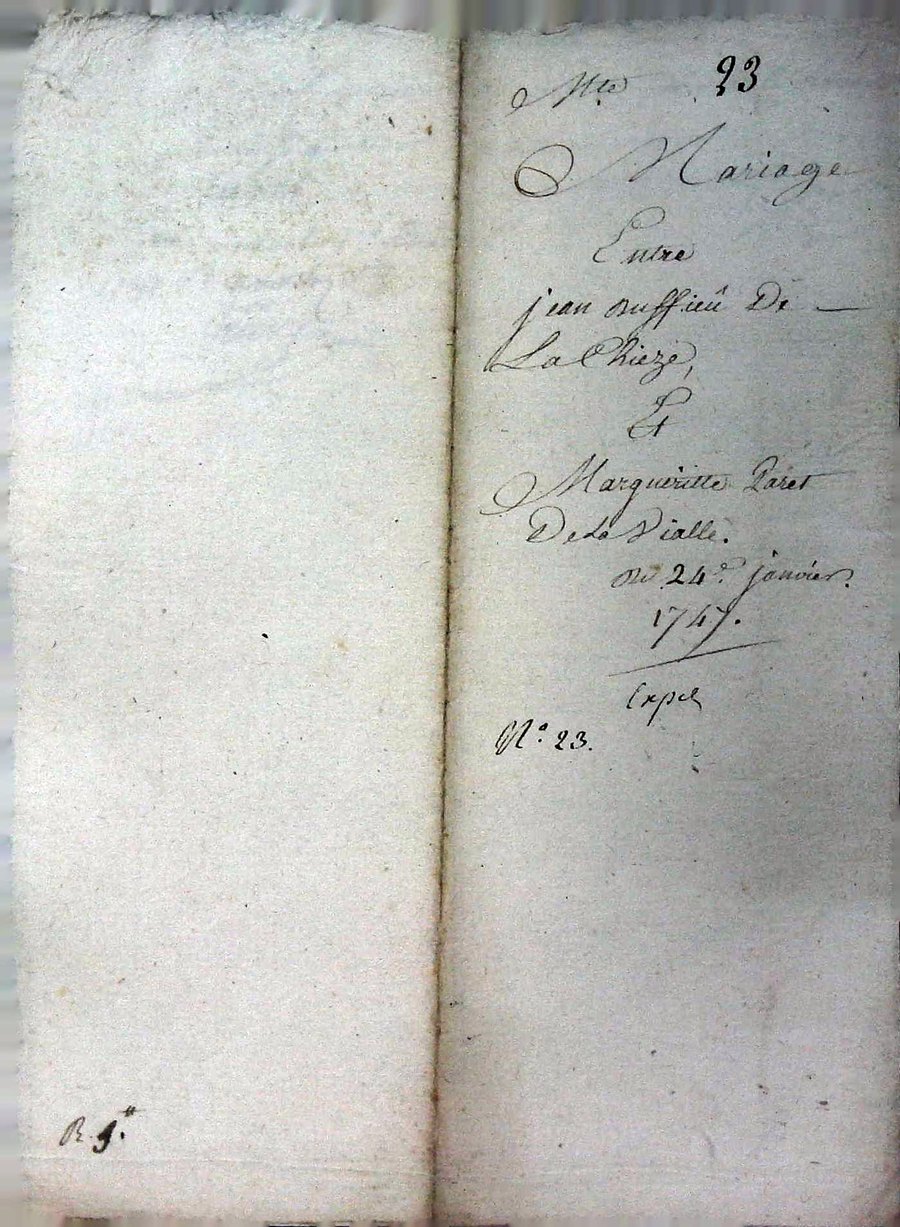 Mte 23
Mariage
Entre
jean Ruffieû De
La Chieze,
Et
Margueritte Paret
De La Vialle.
Du 24e. janvier.
1747.
Expé
N.o 23.
R